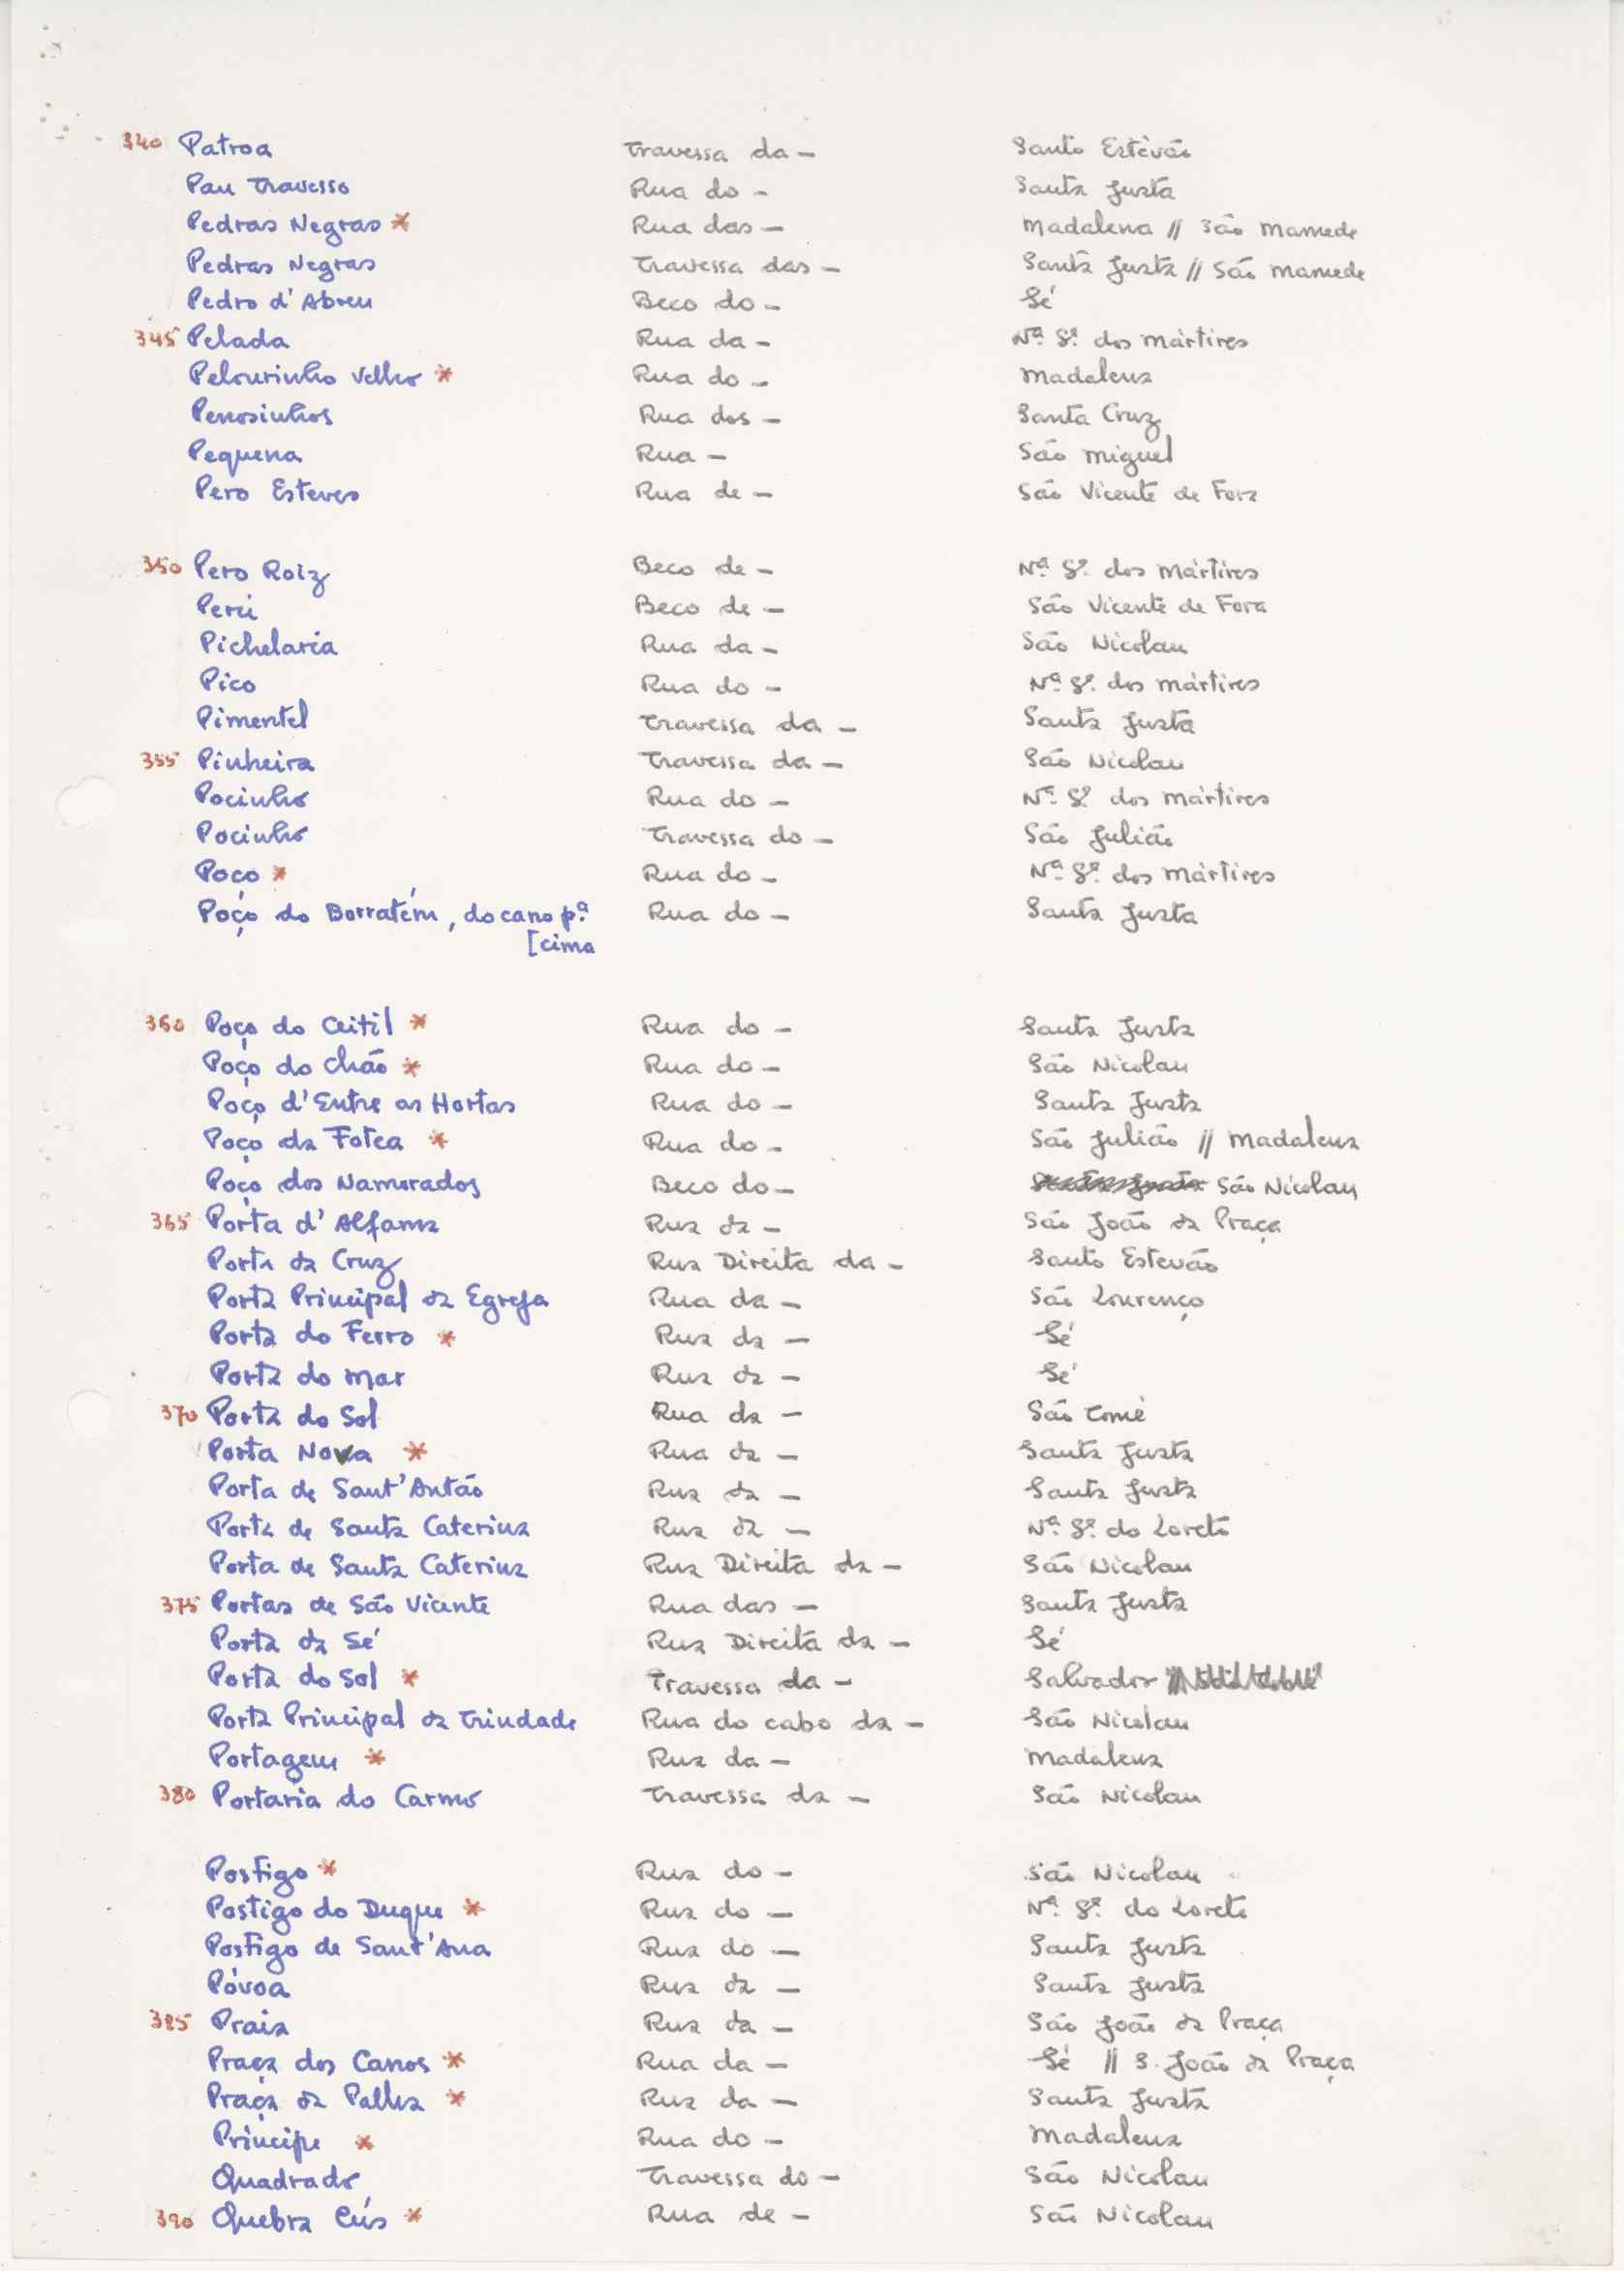 340 Patroa Travessa da – Santo Estêvão
Pau Travesso Rua do – Santa Justa
Pedras Negras * Rua das – Madalena // São Mamede
Pedras Negras Travessa das – Santa Justa // São Mamede
Pedro d'Abreu Beco do – Sé
345 Pelada Rua da – Nª Sª dos Mártires
Pelourinho Velho * Rua do – Madalena
Penosinhos Rua dos – Santa Cruz
Pequena Rua – São Miguel
Pero Esteves Rua de – São Vicente de Fora
350 Pero Roiz Beco de – Nª Sª dos Mártires
Perú Beco de – São Vicente de Fora
Pichelaria Rua da – São Nicolau
Pico Rua do – Nª Sª dos Mártires
Pimentel Travessa da – Santa Justa
355 Pinheira Travessa da – São Nicolau
Pocinho Rua do – Nª Sª dos Mártires
Pocinho Travessa do – São Julião
Poco * Rua do – Nª Sª dos Mártires
Poço do Borratém, do cano pª Rua do – Santa Justa
[cima
360 Poço do Ceitil * Rua do – Santa Justa
Poço do Chão * Rua do – São Nicolau
Poço d'Entre as Hortas Rua do – Santa Justa
Poço da Fotea * Rua do – São Julião // Madalena
Poço dos Namorados Beco do – São Nicolau
365 Porta d'Alfama Rua da – São João da Praça
Porta da Cruz Rua Direita da – Santo Estevão
Porta Principal da Egreja Rua da – São Lourenço
Porta do Ferro * Rua da – Sé
Porta do Mar Rua da – Sé
370 Porta do Sol Rua da – São Tomé
Porta Nova * Rua da – Santa Justa
Porta de Sant'Antão Rua da – Santa Justa
Porta de Santa Caterina Rua da – Nª Sª do Loreto
Porta de Santa Caterina Rua Direita da – São Nicolau
375 Portas de São Vicente Rua das – Santa Justa
Porta da Sé Rua Direita da – Sé
Porta do Sol * Travessa da – Salvador
Porta Principal da Trindade Rua do cabo da – São Nicolau
Portagem * Rua da – Madalena
380 Portaria do Carmo Travessa da – São Nicolau
Postigo * Rua do – São Nicolau
Postigo do Duque * Rua do – Nª Sª do Loreto
Postigo de Sant'Ana Rua do – Santa Justa
Póvoa Rua da – Santa Justa
385 Praia Rua da – São João da Praça
Praça dos Canos * Rua da – Sé // S. João da Praça
Praça da Palha * Rua da – Santa Justa
Príncipe * Rua do – Madalena
Quadrado Travessa do – São Nicolau
390 Quebra Cús * Rua de – São Nicolau